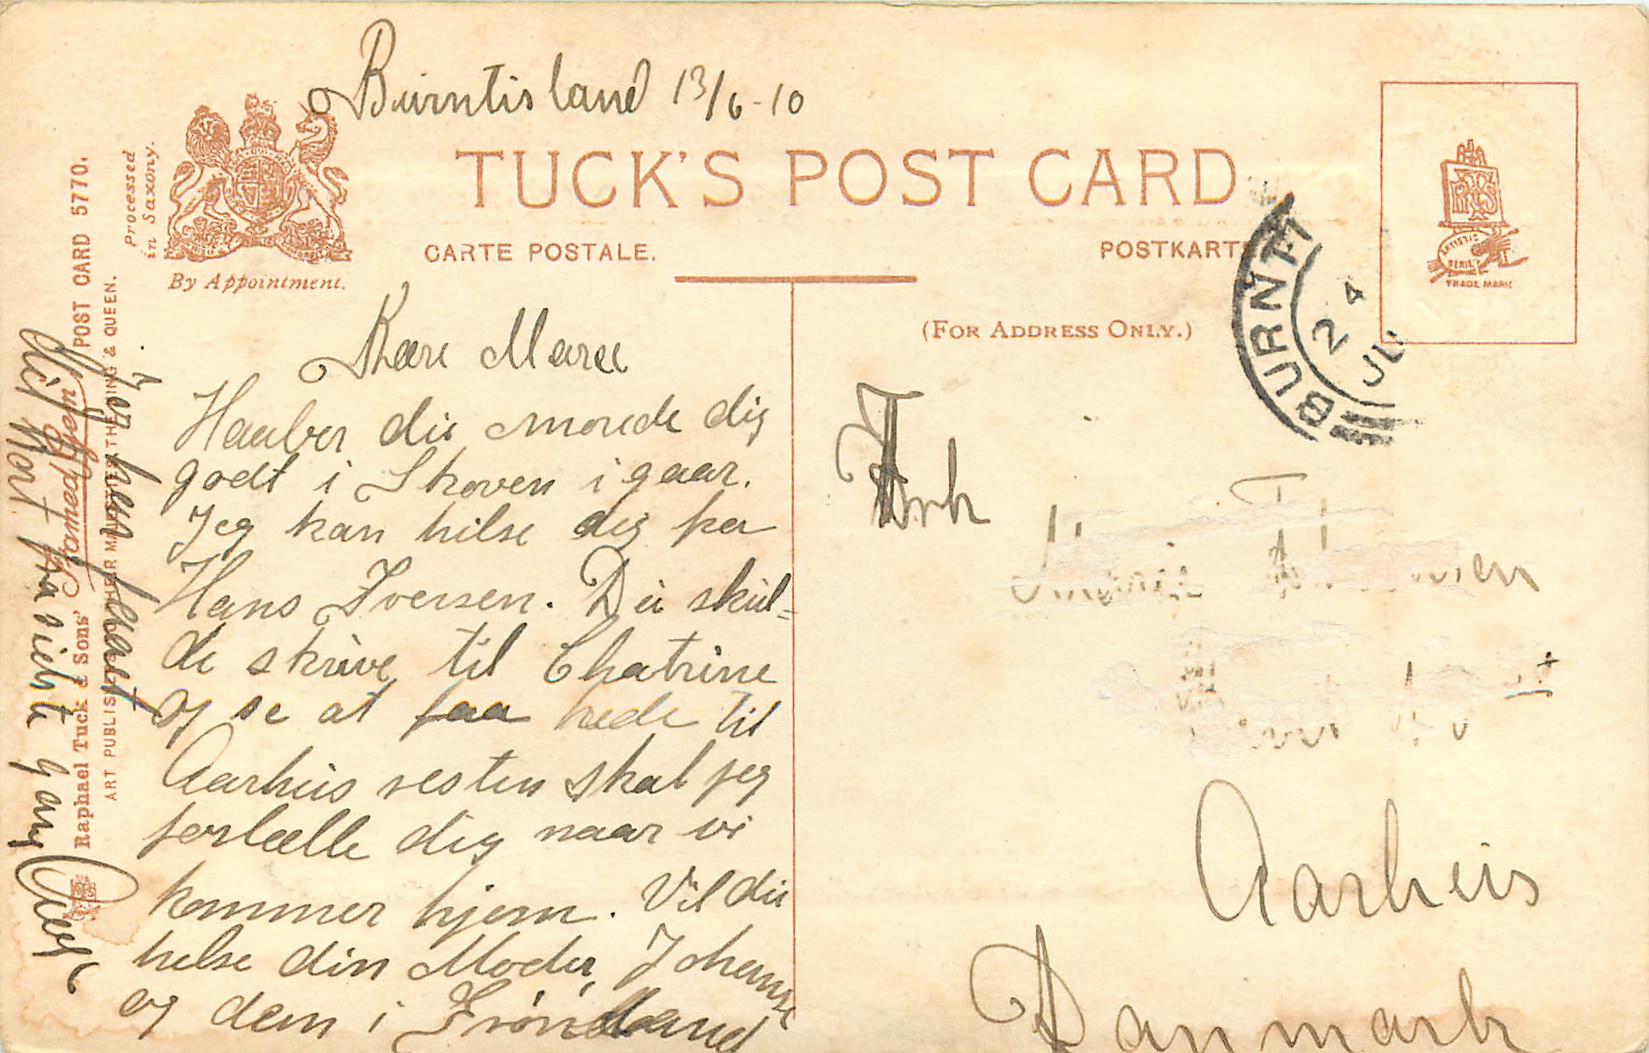 Burntisland 13/6-10
TUCK'S POST CARD
CARTE POSTALE.
POSTKARTE
By Appointment.
Processed
in Saxony.
(FOR ADDRESS ONLY.)
BURNTI
4
2
JU
ARTISTIC
SERIES
TRADE MARK
Raphael Tuck & Sons' POST CARD 5770.
ART PUBLISHERS TO THEIR MAJESTIES THE KING & QUEEN.
Kære Marie
Haaber du morede dig
godt i Skoven i gaar.
Jeg kan hilse dig fra
Hans Iversen. Du skul-
de skrive til Chatrine
og se at faa hede til
Aarhus resten skal jeg
fortælle dig naar vi
kommer hjem. Vil du
hilse din Moder, Johanne
og dem i Frønland
Jeg har faaet
dit Kort fra sidste Gang
Frk
Aarhus
Danmark